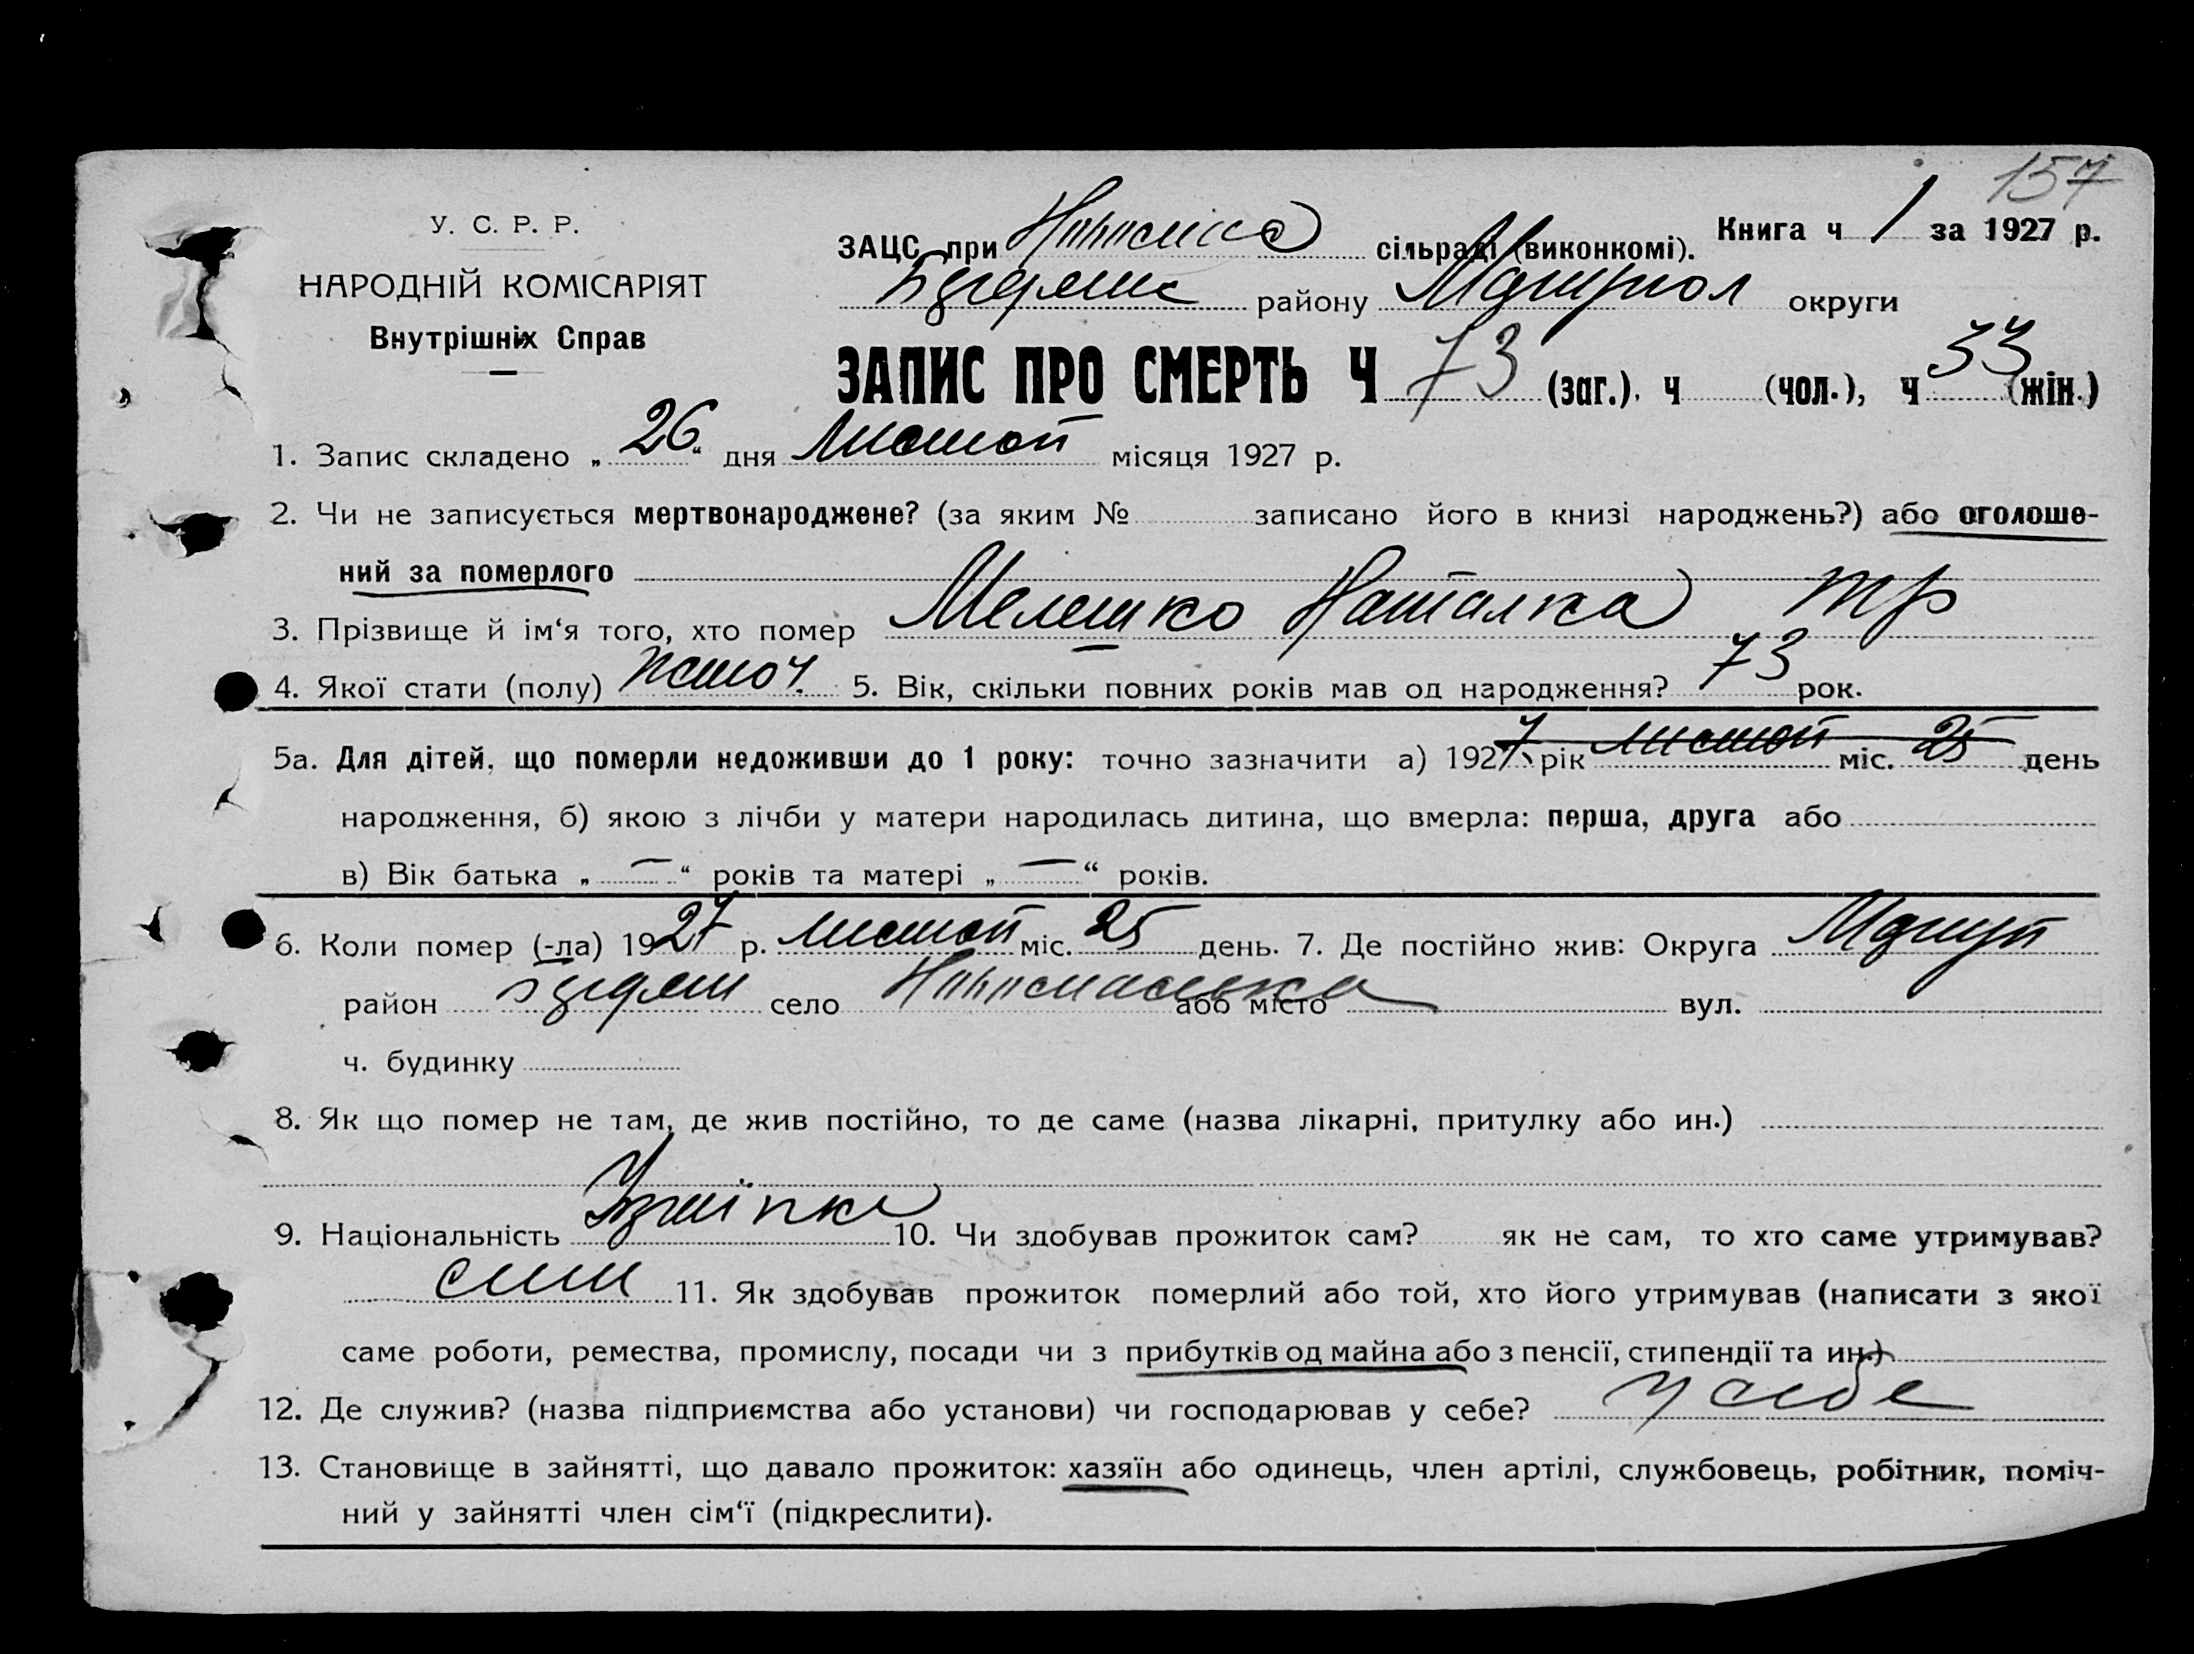 157
У. С. Р. Р.
НАРОДНІЙ КОМІСАРІЯТ
Внутрішніх Справ
Книга ч 1 за 1927 р.
ЗАЦС при сільраді (виконкомі).
району Маріупол округи
ЗАПИС ПРО СМЕРТЬ Ч 73 (заг.), ч (чол.), ч 33 (жін.)
1. Запис складено „ 26 “ дня листоп місяця 1927 р.
2. Чи не записується мертвонароджене? (за яким № записано його в книзі народжень?) або оголоше-
ний за померлого
3. Прізвище й ім‘я того, хто помер Мелешко Наталка Тр
4. Якої стати (полу) жіноч. 5. Вік, скільки повних років мав од народження? 73 рок.
5а. Для дітей, що померли недоживши до 1 року: точно зазначити а) 1927 рік листоп міс. 25 день
народження, б) якою з лічби у матери народилась дитина, що вмерла: перша, друга або
в) Вік батька „ — “ років та матері „ — “ років.
6. Коли помер (-ла) 1927 р. листоп міс. 25 день. 7. Де постійно жив: Округа Маріуп
район село або місто вул.
ч. будинку
8. Як що помер не там, де жив постійно, то де саме (назва лікарні, притулку або ин.)
9. Національність Українка 10. Чи здобував прожиток сам? як не сам, то хто саме утримував?
син 11. Як здобував прожиток померлий або той, хто його утримував (написати з якої
саме роботи, ремества, промислу, посади чи з прибутків од майна або з пенсії, стипендії та ин.)
12. Де служив? (назва підприємства або установи) чи господарював у себе? у себе
13. Становище в зайнятті, що давало прожиток: хазяїн або одинець, член артілі, службовець, робітник, поміч-
ний у зайнятті член сім‘ї (підкреслити).